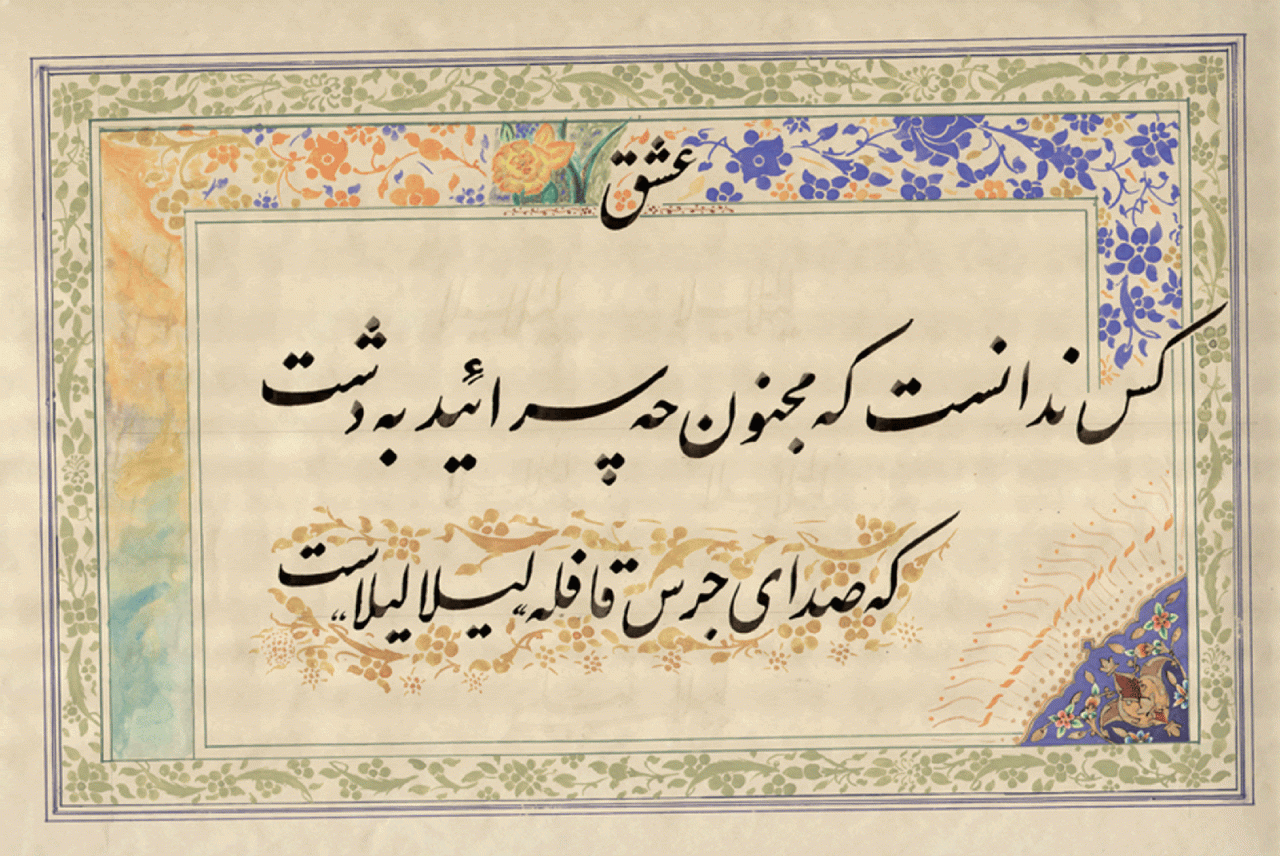 عشق
کس ندانست که مجنون چه سرائید به دشت
که صدای جرس قافله "لیلا لیلا" ست